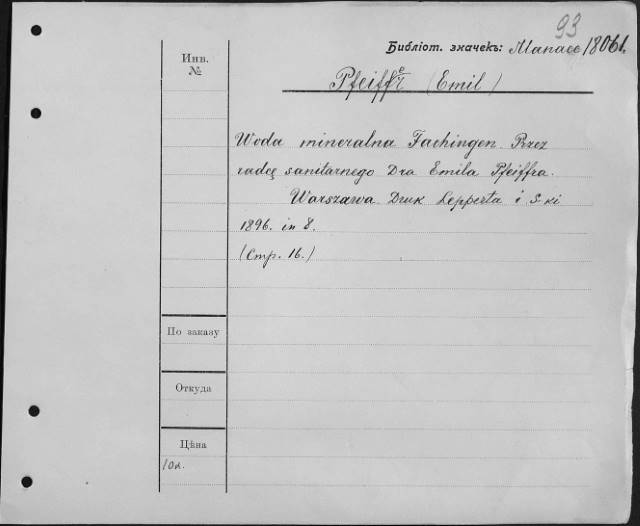 93
Библіот. значекъ: Manaee 18061.
Инв.
№
Pfeiffer (Emil)
Woda mineralna Fachingen. Przez
radcę sanitarnego Dra Emila Pfeiffra.
Warszawa. Druk Lepperta i S-ki
1896. in 8.
(Стр. 16.)
По заказу
Откуда
Цѣна
10к.